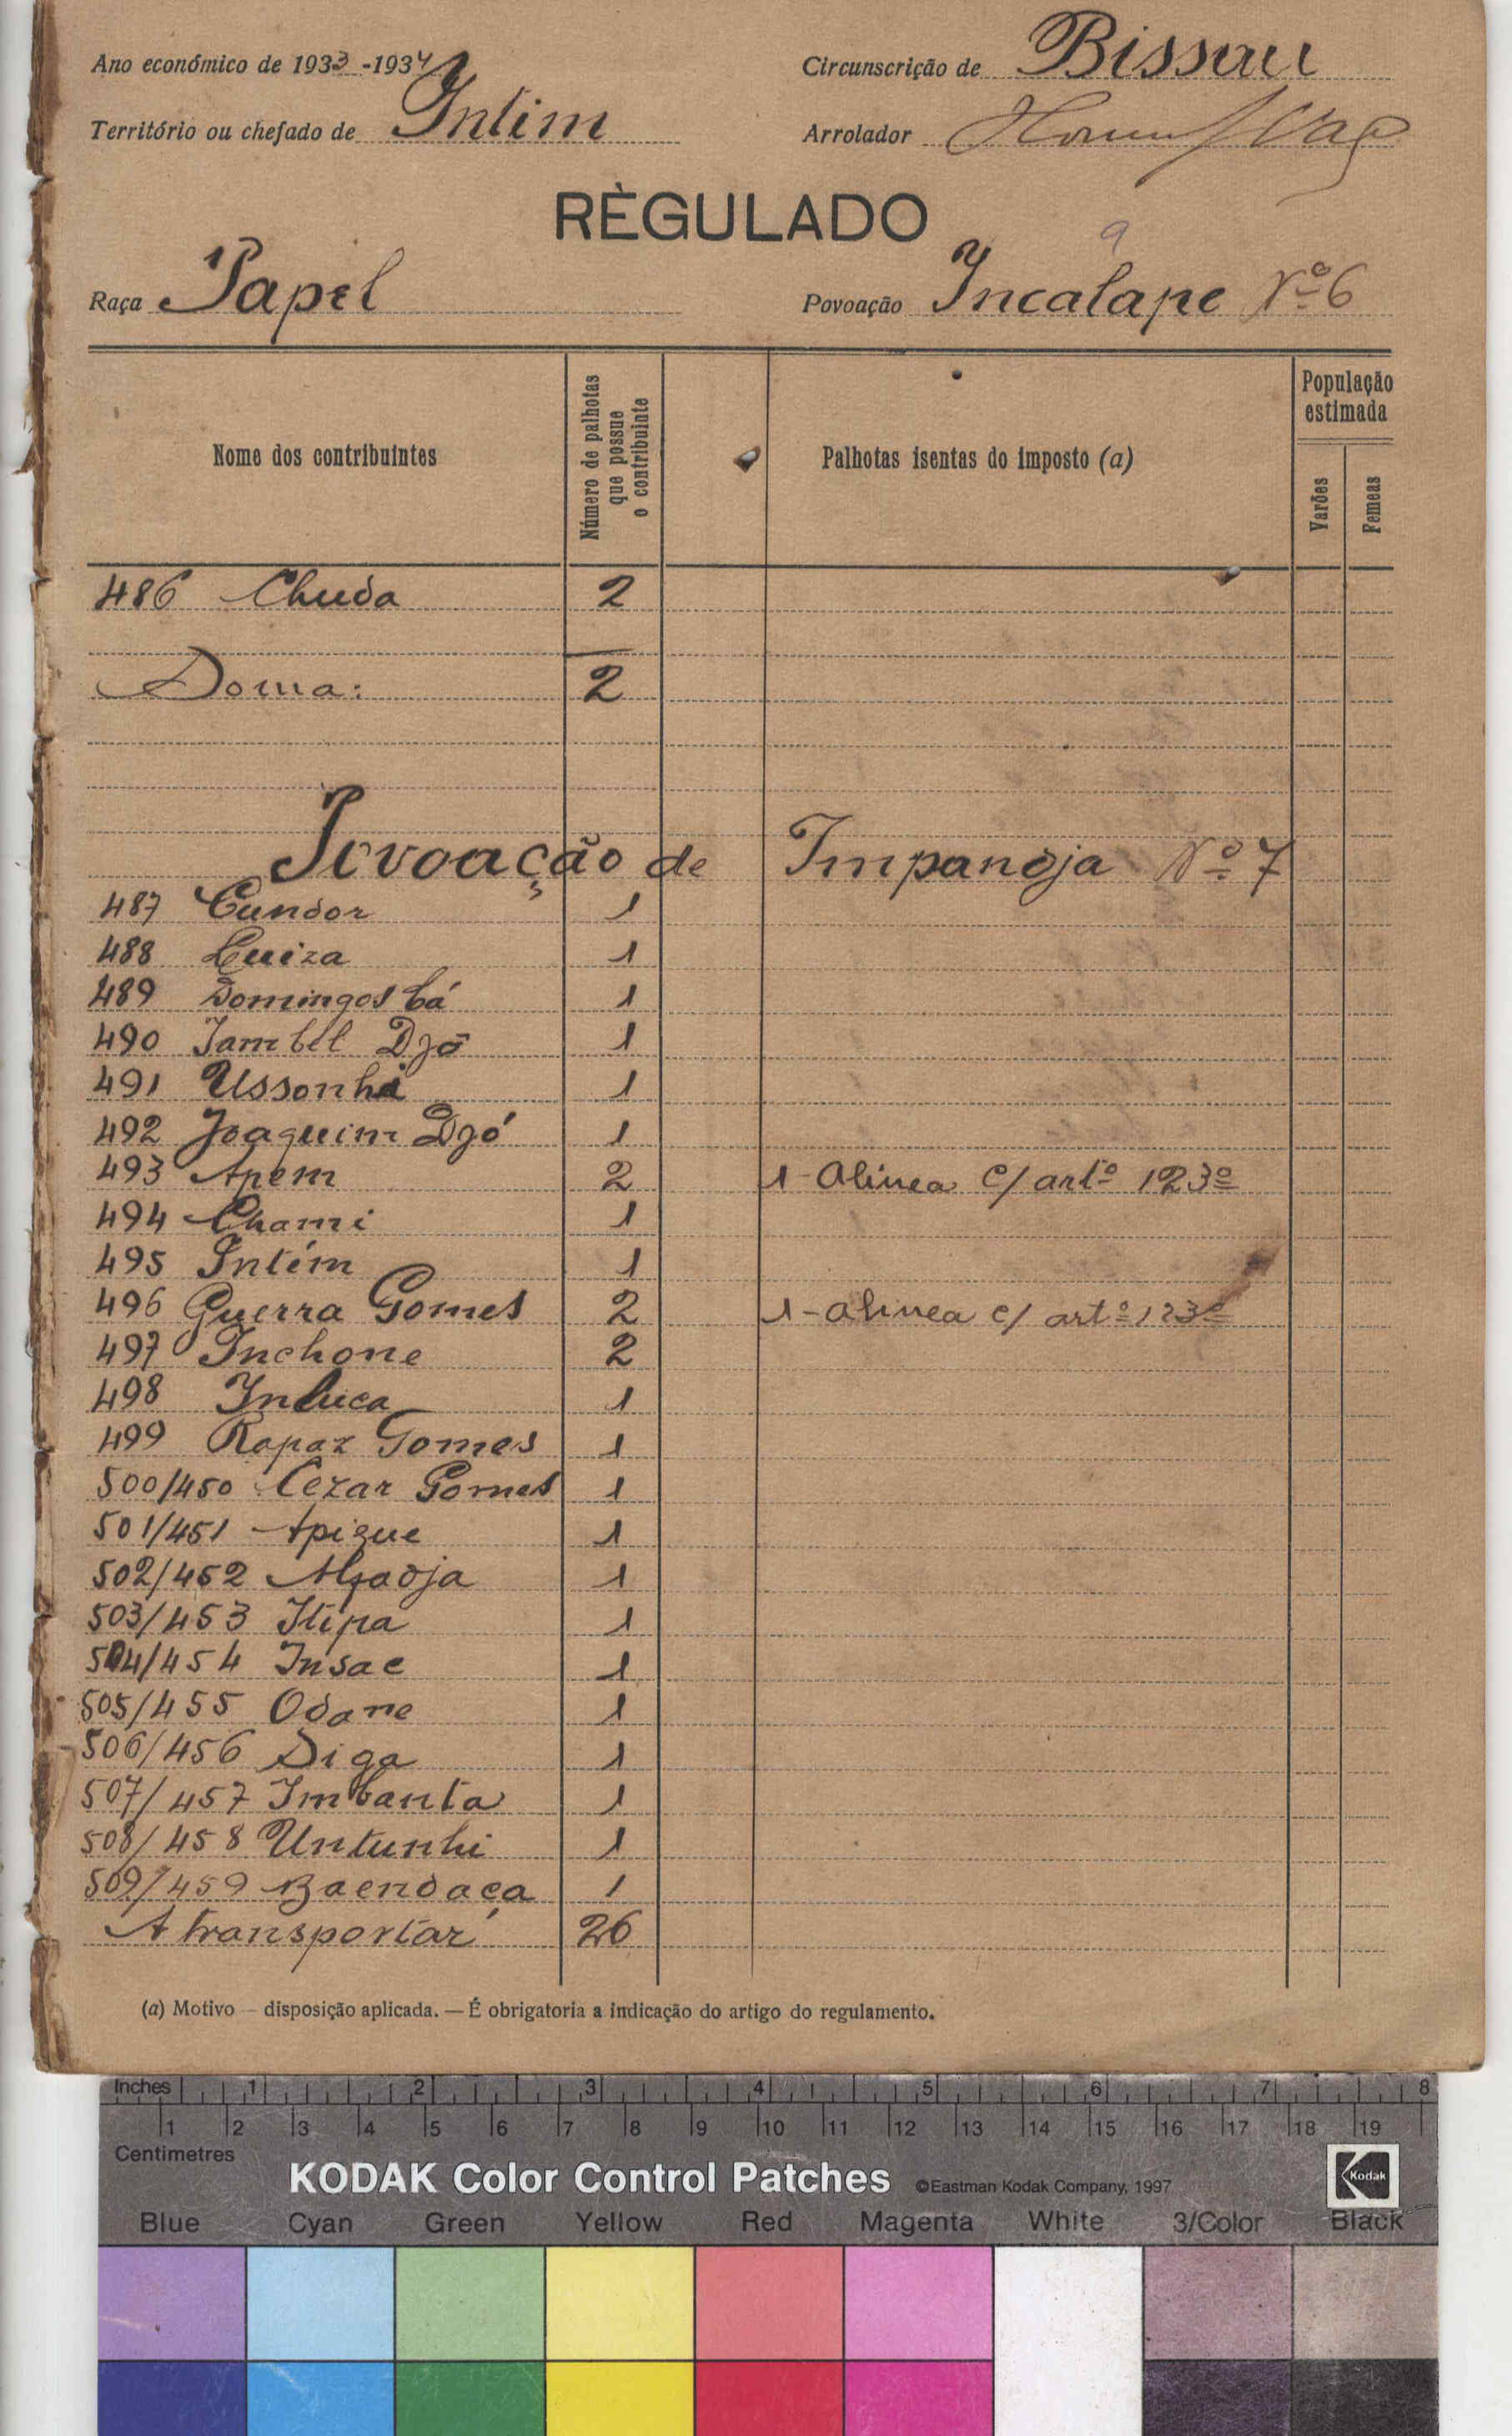 Ano económico de 1933-1934 Circunscrição de Bissau
Território ou chefado de Intim Arrolador
RÈGULADO
Raça Papel Povoação Incalape Nº 6
Nome dos contribuintes
Número de palhotas que possue o contribuinte
Palhotas isentas do imposto (a)
População estimada
Varões
Femeas
486 Chuda 2
Soma: 2
Povoação de Impandja Nº 7
487 Cundor 1
488 Luiza 1
489 Domingos Cá 1
490 Djó 1
491 Ussonhi 1
492 Joaquim Djó 1
493 Apem 2 1-Alinea c/ artº 123º
494 Chami 1
495 Intém 1
496 Guerra Gomes 2 1-alinea c/ artº 123º
497 Inchone 2
498 Induca 1
499 Rapaz Gomes 1
500/450 Cezar Gomes 1
501/451 1
502/452 1
503/453 Itipa 1
504/454 Insac 1
505/455 Odane 1
506/456 Diga 1
507/457 Imbanta 1
508/458 Untunhi 1
509/459 Baendaca 1
A transportar 26
(a) Motivo — disposição aplicada. — É obrigatoria a indicação do artigo do regulamento.
Inches 1 2 3 4 5 6 7 8
1 2 3 4 5 6 7 8 9 10 11 12 13 14 15 16 17 18 19
Centimetres
KODAK Color Control Patches ©Eastman Kodak Company, 1997 Kodak
Blue Cyan Green Yellow Red Magenta White 3/Color Black